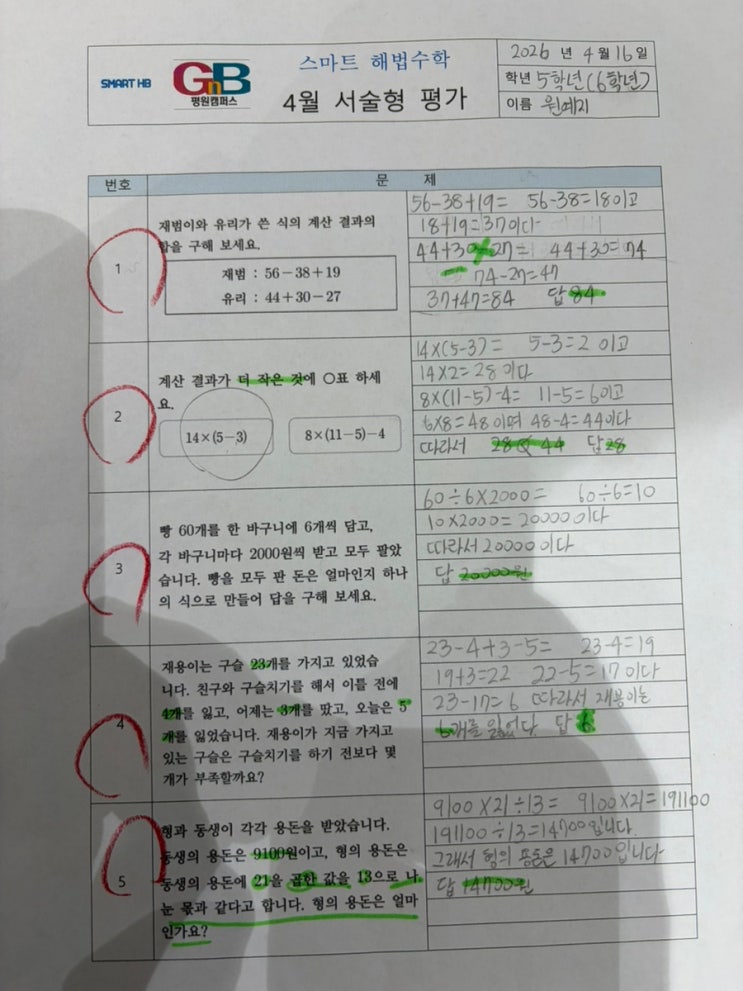 SMART HB
GnB
평원캠퍼스
스마트 해법수학
4월 서술형 평가
2026 년 4월 16일
학년 5학년(6학년)
이름 원예지
번호
문 제
1
재범이와 유리가 쓴 식의 계산 결과의
합을 구해 보세요.
재범 : 56-38+19
유리 : 44+30-27
56-38+19= 56-38=18이고
18+19=37이다
44+30-27= 44+30=74
74-27=47
37+47=84 답 84
2
계산 결과가 더 작은 것에 ○표 하세
요.
14×(5-3)
8×(11-5)-4
14×(5-3)= 5-3=2 이고
14×2=28이다
8×(11-5)-4= 11-5=6이고
6×8=48이며 48-4=44이다
따라서 28<44 답 28
3
빵 60개를 한 바구니에 6개씩 담고,
각 바구니마다 2000원씩 받고 모두 팔았
습니다. 빵을 모두 판 돈은 얼마인지 하나
의 식으로 만들어 답을 구해 보세요.
60÷6×2000= 60÷6=10
10×2000=20000이다
따라서 20000이다
답 20000원
4
재용이는 구슬 23개를 가지고 있었습
니다. 친구와 구슬치기를 해서 이틀 전에
4개를 잃고, 어제는 3개를 땄고, 오늘은 5
개를 잃었습니다. 재용이가 지금 가지고
있는 구슬은 구슬치기를 하기 전보다 몇
개가 부족할까요?
23-4+3-5= 23-4=19
19+3=22 22-5=17이다
23-17=6 따라서 재용이는
6개를 잃었다. 답 6
5
형과 동생이 각각 용돈을 받았습니다.
동생의 용돈은 9100원이고, 형의 용돈은
동생의 용돈에 21을 곱한 값을 13으로 나
눈 몫과 같다고 합니다. 형의 용돈은 얼마
인가요?
9100×21÷13= 9100×21=191100
191100÷13=14700입니다.
그래서 형의 용돈은 14700입니다
답 14700원